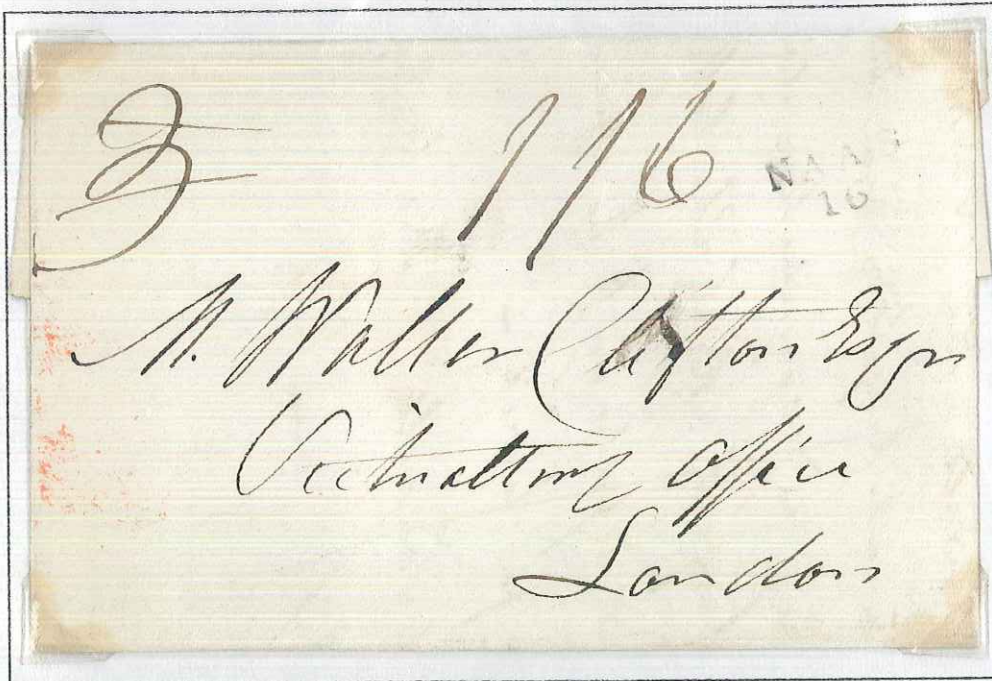 3 1/6
NAAS
16
M. Waller Clifton Esqr
Victualling Office
London